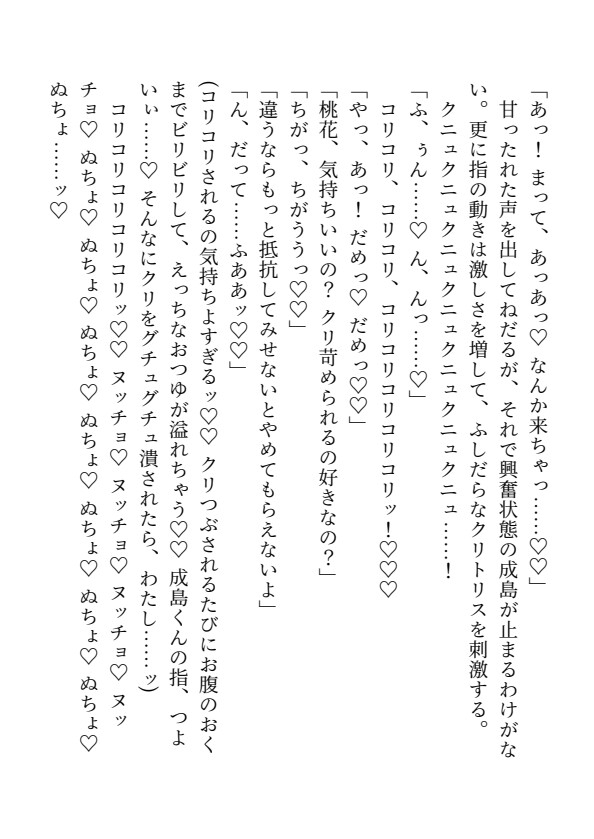 「あっ！ まって、あっあっ♡ なんか来ちゃっ……♡♡」
　甘ったれた声を出してねだるが、それで興奮状態の成島が止まるわけがな
い。更に指の動きは激しさを増して、ふしだらなクリトリスを刺激する。
　クニュクニュクニュクニュクニュクニュ……！
「ふ、ぅん……♡ ん、んっ……♡」
　コリコリ、コリコリ、コリコリコリコリコリッ！♡♡♡
「やっ、あっ！ だめっ♡ だめっ♡♡」
「桃花、気持ちいいの？ クリ苛められるの好きなの？」
「ちがっ、ちがううっ♡♡」
「違うならもっと抵抗してみせないとやめてもらえないよ」
「ん、だって……ふああッ♡♡」
(コリコリされるの気持ちよすぎるッ♡♡ クリつぶされるたびにお腹のおく
までビリビリして、えっちなおつゆが溢れちゃう♡♡ 成島くんの指、つよ
いぃ……♡ そんなにクリをグチュグチュ潰されたら、わたし……ッ)
　コリコリコリコリコリッ♡♡ ヌッチョ♡ ヌッチョ♡ ヌッチョ♡ ヌッ
チョ♡ ぬちょ♡ ぬちょ♡ ぬちょ♡ ぬちょ♡ ぬちょ♡ ぬちょ♡ ぬちょ♡
ぬちょ……ッ♡